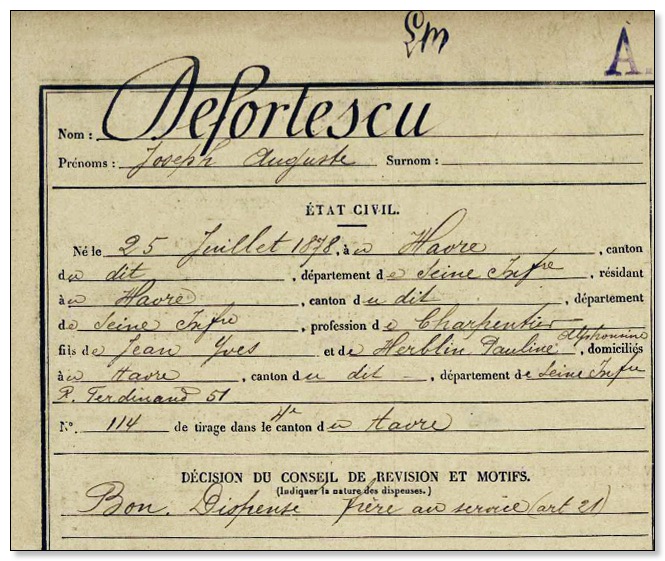 Lm
A
Nom : Defortescu
Prénoms : Joseph Auguste Surnom :
ÉTAT CIVIL.
Né le 25 Juillet 1878, à u Havre, canton
du dit, département de Seine Infre, résidant
à u Havre, canton du dit, département
de Seine Infre, profession de Charpentier
fils de Jean Yves et de Herblin Pauline Alphonsine, domiciliés
à u Havre, canton du dit, département de Seine Infre
R. Ferdinand 51
N°. 114 de tirage dans le 4e canton du Havre
DÉCISION DU CONSEIL DE REVISION ET MOTIFS.
(Indiquer la nature des dispenses.)
Bon. Dispense frère au service (art 21)